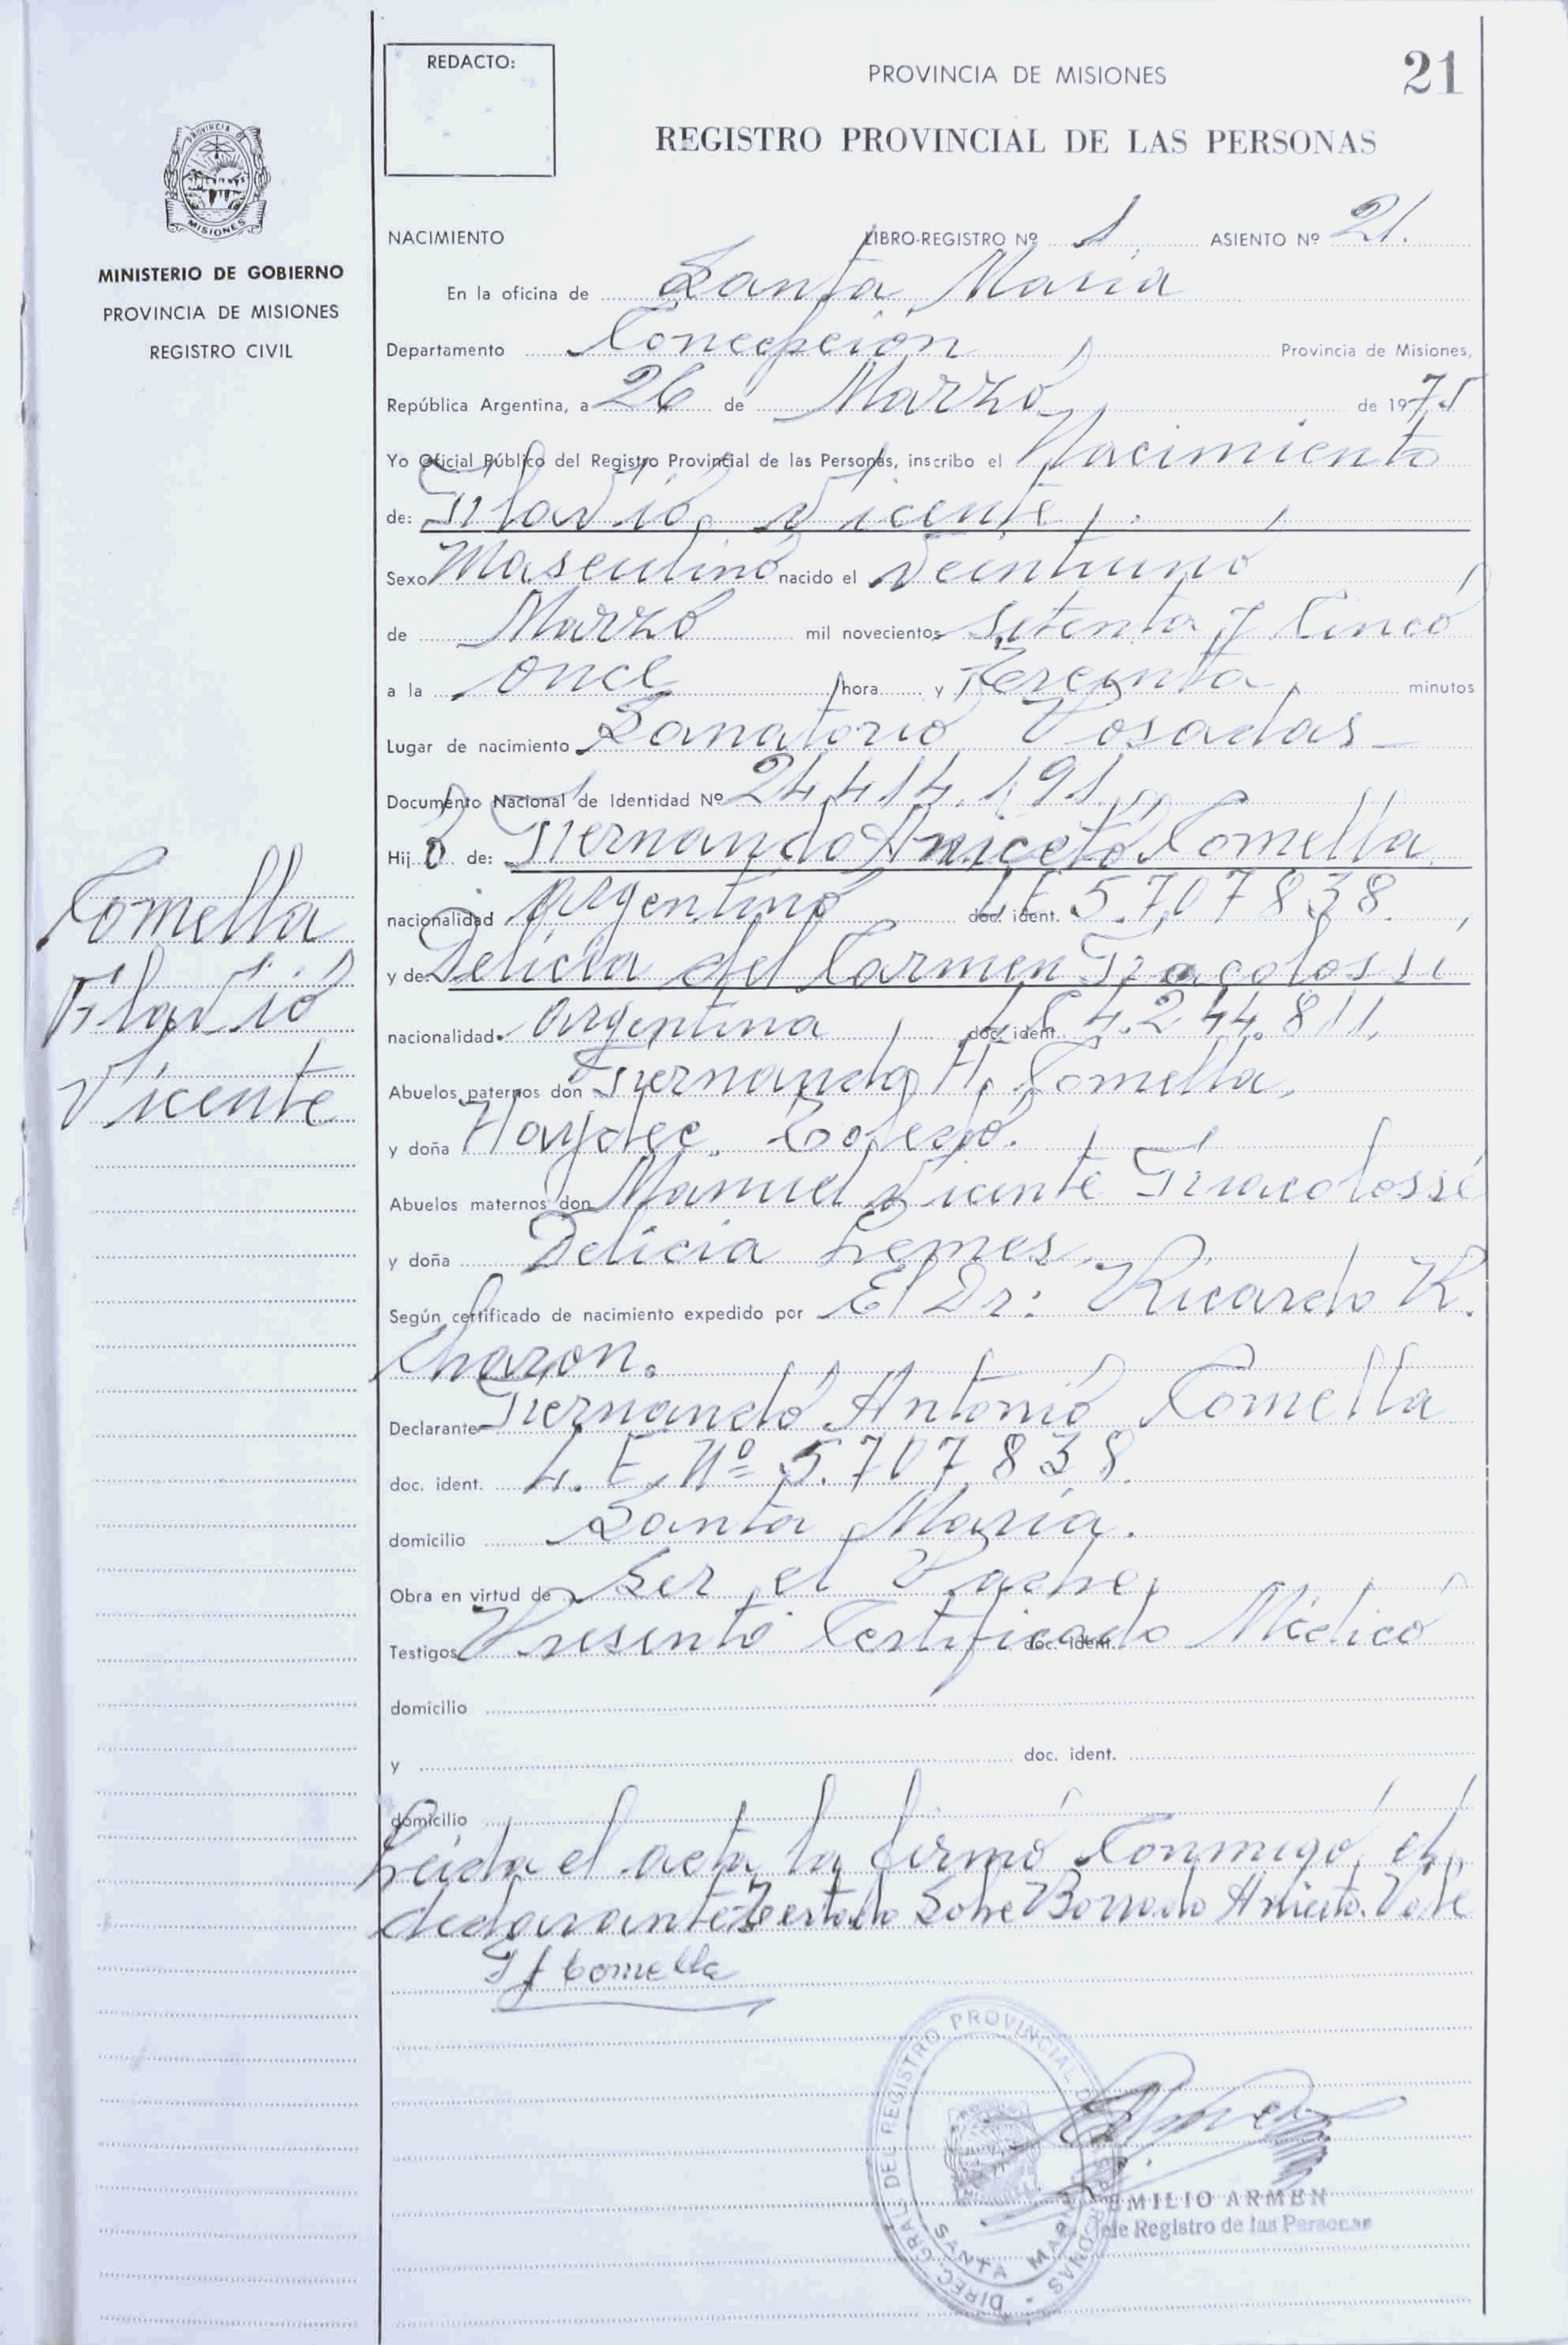 REDACTO:
PROVINCIA DE MISIONES
21
REGISTRO PROVINCIAL DE LAS PERSONAS
PROVINCIA DE
MISIONES
MINISTERIO DE GOBIERNO
PROVINCIA DE MISIONES
REGISTRO CIVIL
NACIMIENTO LIBRO-REGISTRO Nº 1 ASIENTO Nº 21.
En la oficina de Santa Maria
Departamento Concepción, Provincia de Misiones,
República Argentina, a 26 de Marzo de 1975
Yo Oficial Público del Registro Provincial de las Personas, inscribo el Nacimiento
de: Flavio Vicente,
Sexo Masculino nacido el Veintiuno
de Marzo mil novecientos Setenta y Cinco
a la Once hora y Treinta minutos
Lugar de nacimiento Sanatorio Posadas
Documento Nacional de Identidad Nº 24.414.191
Hijo de: Fernando Aniceto Comella
nacionalidad Argentino doc. ident. L.E 5.707838.
y de Delicia del Carmen Fracolossi
nacionalidad Argentina, doc. ident. L.C 4.244.811,
Abuelos paternos don Fernando A. Comella,
y doña Haydee Toledo.
Abuelos maternos don Manuel Vicente Fracolossi
y doña Delicia Lemes
Según certificado de nacimiento expedido por El Dr: Ricardo R.
Charon.
Declarante Fernando Antonio Comella
doc. ident. L.E. Nº 5.707.838.
domicilio Santa Maria.
Obra en virtud de Ser el Padre,
Testigos Presento Certificado Médico doc. ident.
domicilio
y doc. ident.
domicilio
Leida el acta la firmó Conmigo el
declarante Testado Sobre Borrado Aniceto. Vale
F A Comella
Comella
Flavio
Vicente
DIREC. GRAL DEL REGISTRO PROVINCIAL DE LAS PERSONAS
SANTA MARIA
EMILIO ARMEN
Jefe Registro de las Personas